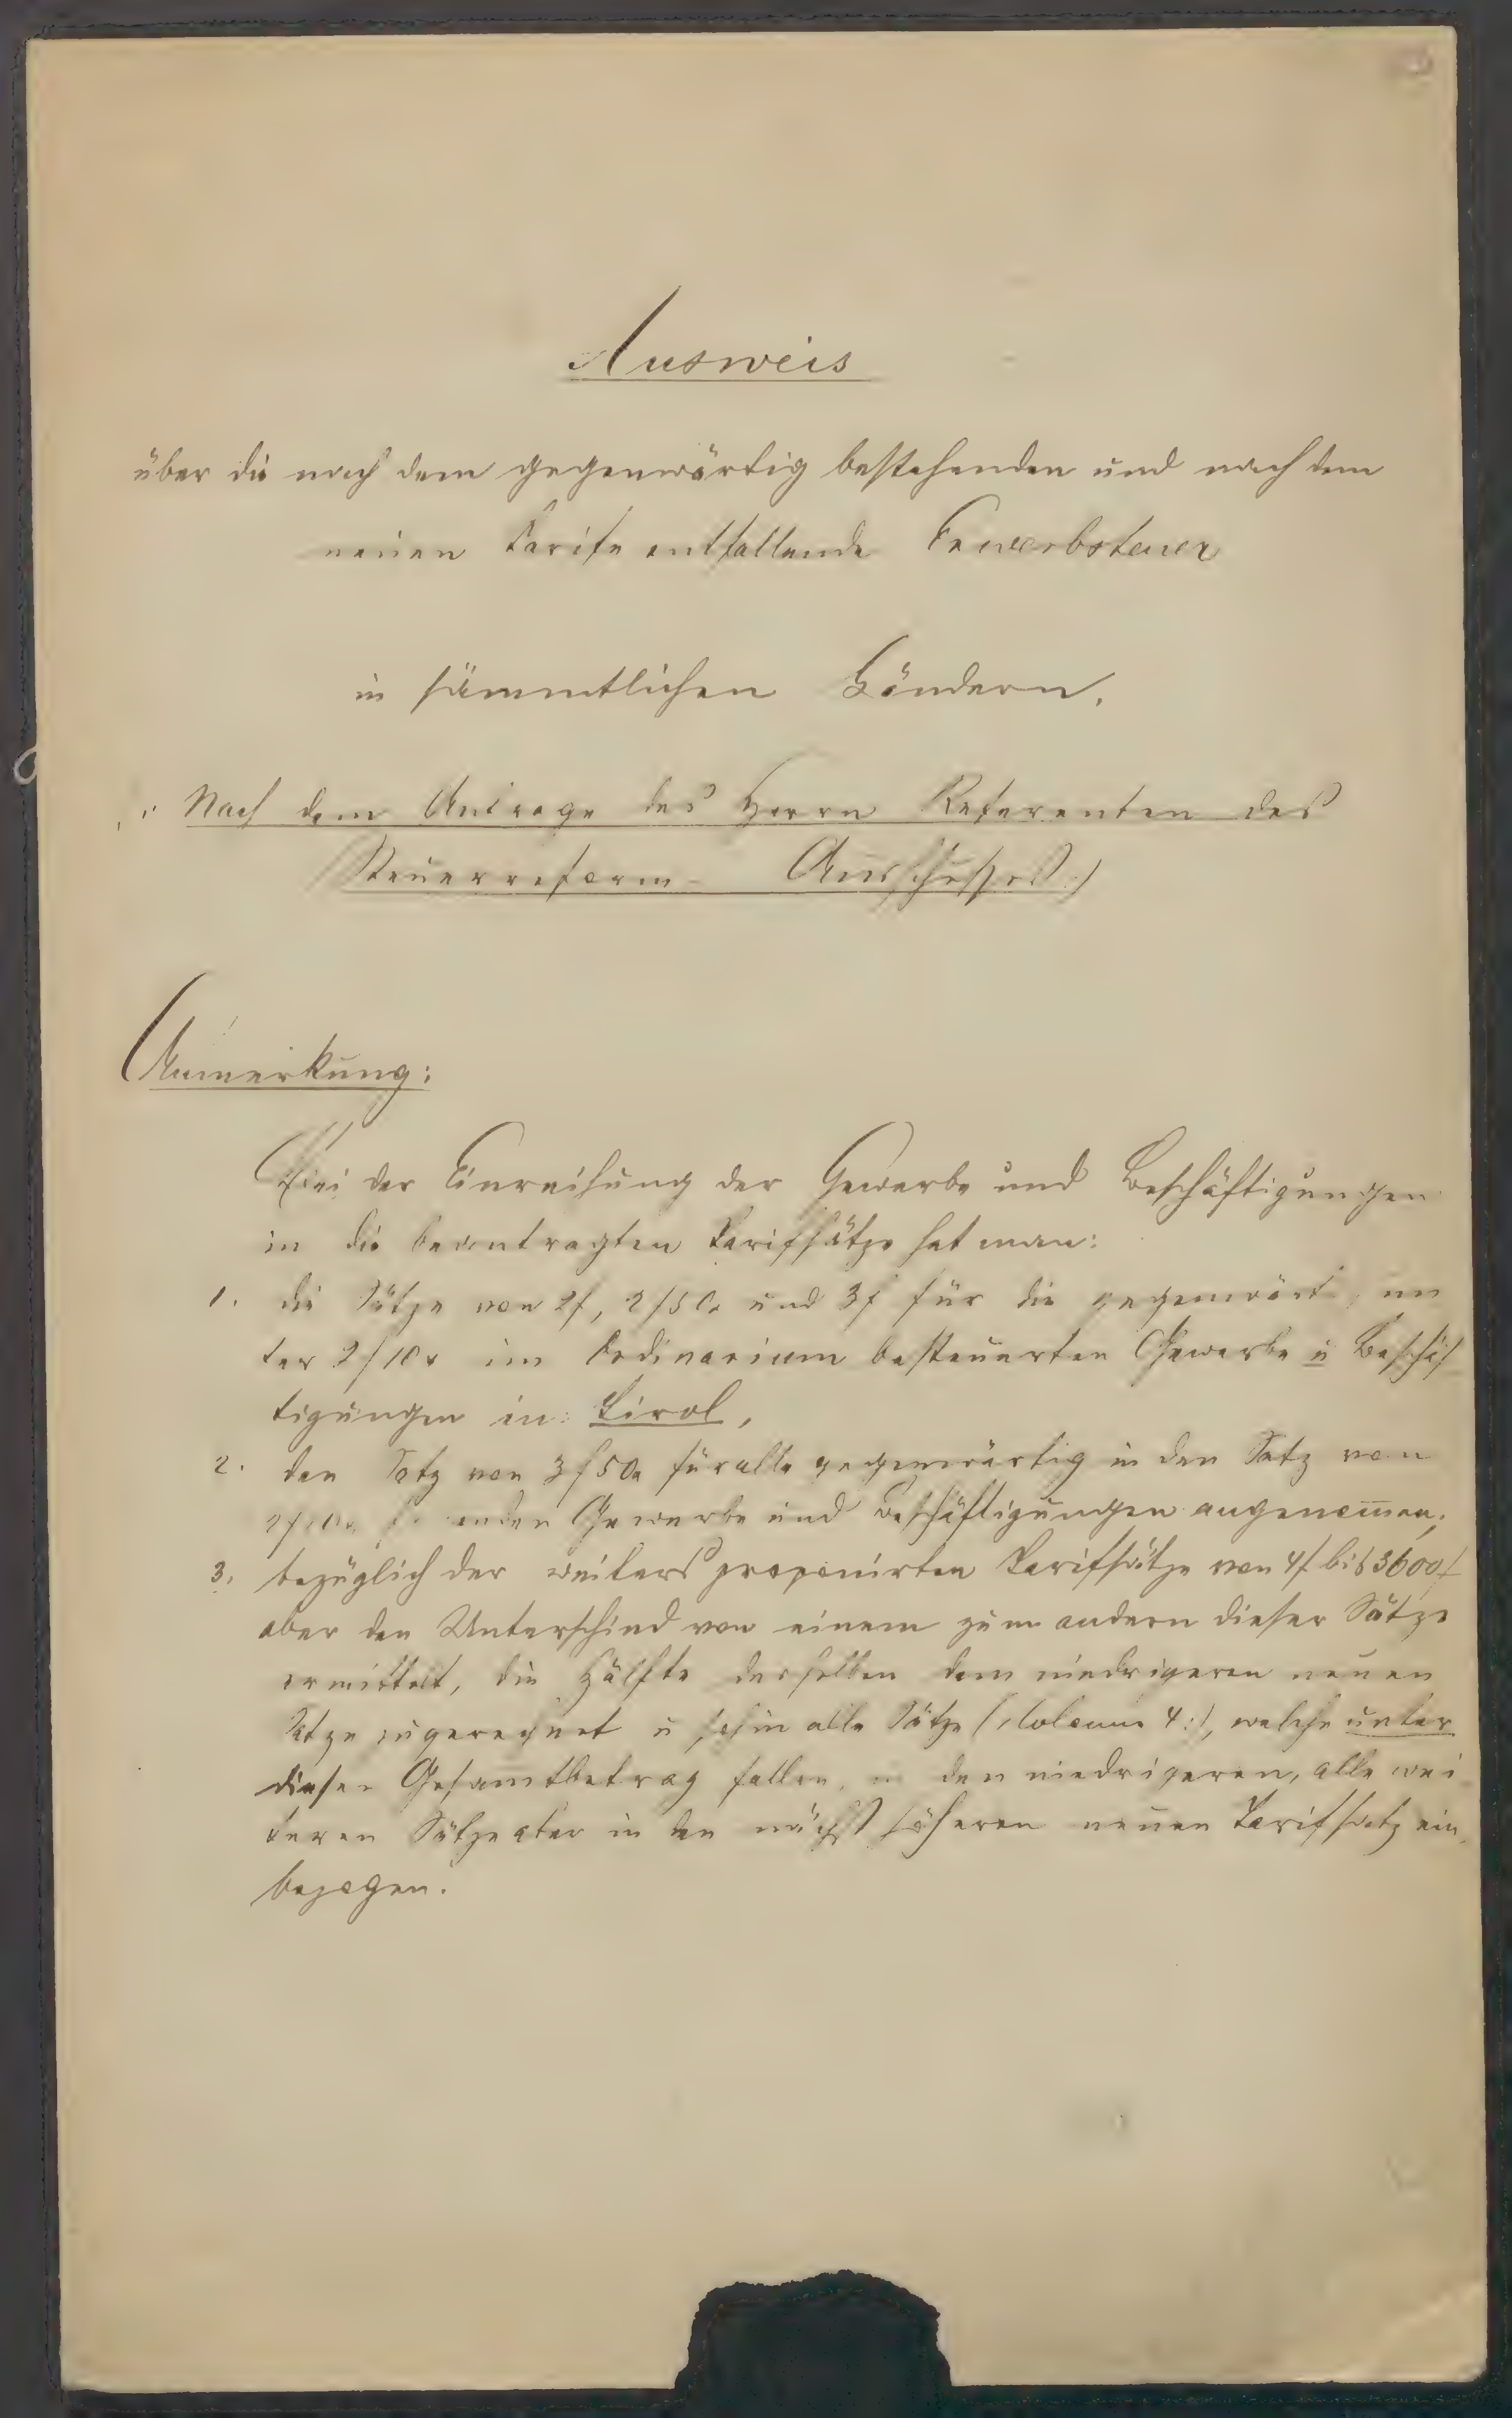 Ausweis
über die nach dem gegenwärtig bestehenden und nach dem
neuen Tarife entfallende Erwerbsteuer
in sämmtlichen Ländern.
Nach dem Antrage des Herrn Referenten des
Steuerreform- Ausschusses :)
Anmerkung:
Bei der Einreihung der Gewerbe und Beschäftigungen
in die beantragten Tarifsätze hat man:
1. die Sätze von 2f, 2f50 und 3f für die gegenwärtig un
ter 2f10x im Ordinarium besteuerten Gewerbe u Beschäf
tigungen in: Tirol,
2. den Satz von 3f50 für alle gegenwärtig in den Satz von
Gewerbe und Beschäftigungen angenom̄en;
3. bezüglich der weiters proponirten Tarifsätze von 4f bis 3600f
aber den Unterschied von einem zum andern dieser Sätze
ermittelt, die Hälfte desselben dem niedrigeren neuen
Satze zugerechnet u sohin alle Sätze (:Colonne 4:), welche unter
diesen Gesamtbetrag fallen, in den niedrigeren, alle wei
teren Sätze aber in den nächst höheren neuen Tarifsatz ein
bezogen.